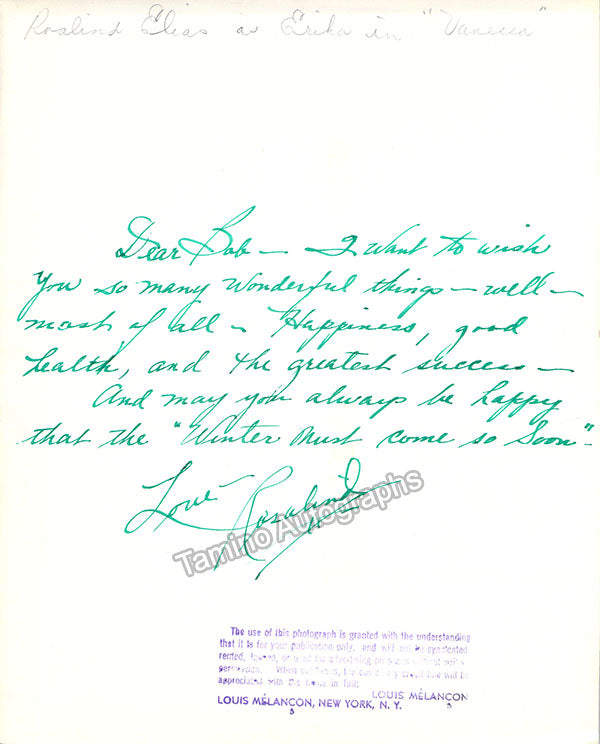 Rosalind Elias as Erika in "Vanessa"
Dear Bob — I want to wish
you so many wonderful things — well —
most of all — Happiness, good
health, and the greatest success —
And may you always be happy
that the "Winter must come so soon"
Love Rosalind
Tamino Autographs
The use of this photograph is granted with the understanding
that it is for your publication only, and will not be syndicated
rented, loaned, or used for advertising purposes without
permission. When published, the customary credit line will be
appreciated with the name in full:
LOUIS MÉLANCON
LOUIS MÉLANCON, NEW YORK, N. Y.